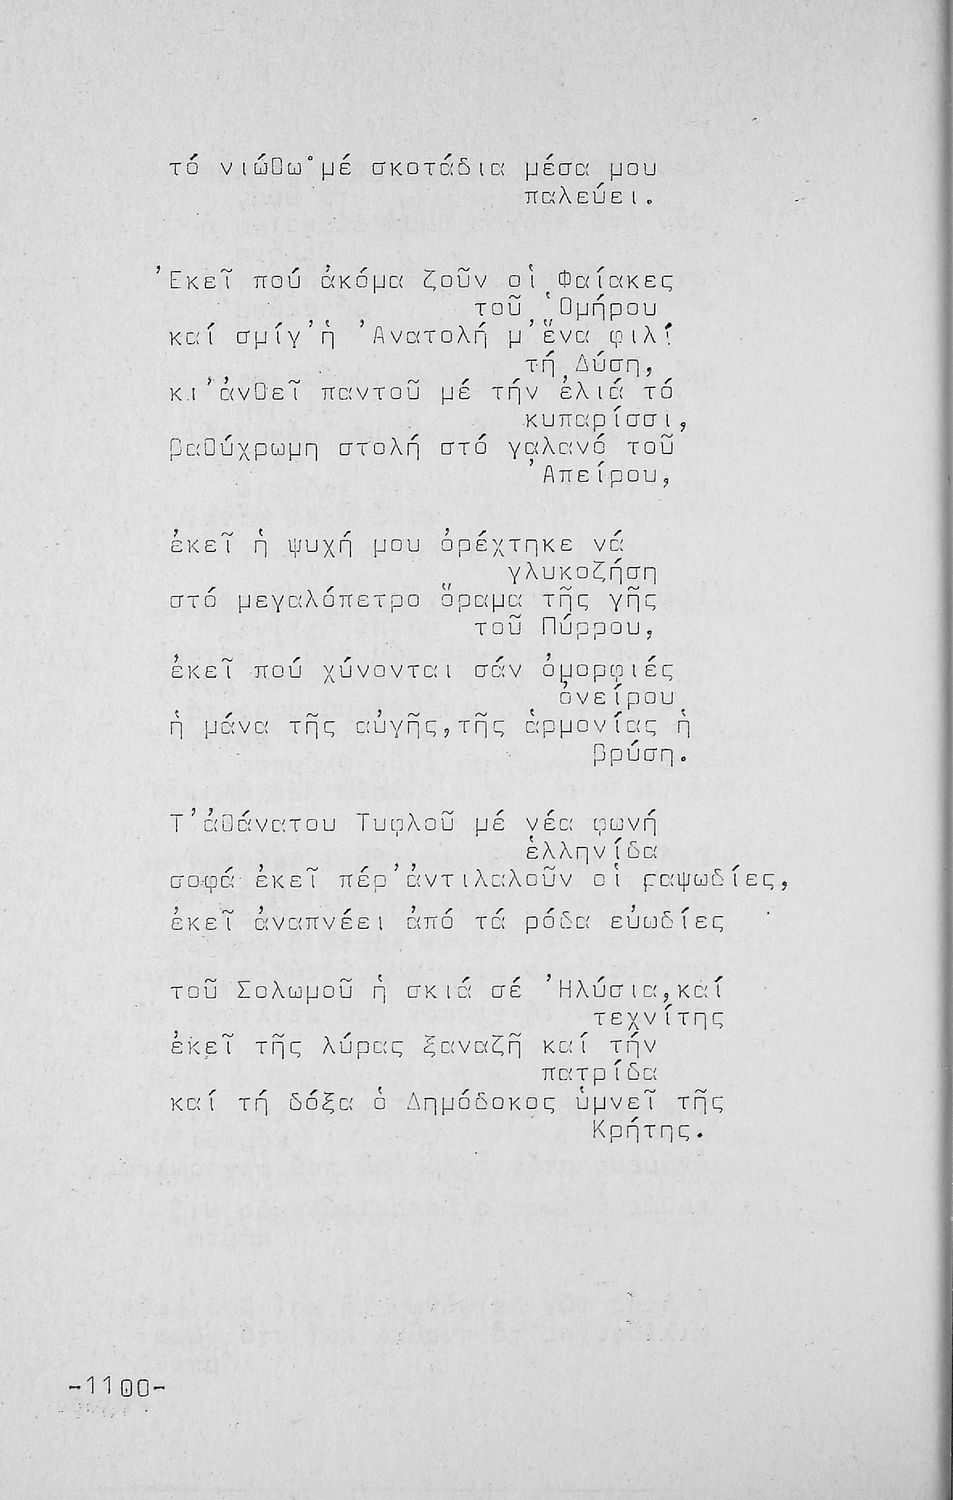 τό νιώθω° μέ σκοτάδια μέσα μου
παλεύει.
Ἐκεῖ πού ἀκόμα ζοῦν οἱ Φαίακες
τοῦ Ὁμήρου
καί σμίγ' ἡ Ἀνατολή μ' ἕνα φιλί
τή Δύση,
κι' ἀνθεῖ παντοῦ μέ τήν ἐλιά τό
κυπαρίσσι,
βαθύχρωμη στολή στό γαλανό τοῦ
Ἀπείρου,
ἐκεῖ ἡ ψυχή μου ὀρέχτηκε νά
γλυκοζήση
στό μεγαλόπετρο ὅραμα τῆς γῆς
τοῦ Πύρρου,
ἐκεῖ πού χύνονται σάν ὀμορφιές
ὀνείρου
ἡ μάνα τῆς αὐγῆς, τῆς ἁρμονίας ἡ
βρύση.
Τ' ἀθάνατου Τυφλοῦ μέ νέα φωνή
ἑλληνίδα
σοφά ἐκεῖ πέρ' ἀντιλαλοῦν οἱ ραψωδίες,
ἐκεῖ ἀναπνέει ἀπό τά ρόδα εὐωδίες
τοῦ Σολωμοῦ ἡ σκιά σέ Ἠλύσια, καί
τεχνίτης
ἐκεῖ τῆς λύρας ξαναζῆ καί τήν
πατρίδα
καί τή δόξα ὁ Δημόδοκος ὑμνεῖ τῆς
Κρήτης.
-1100-